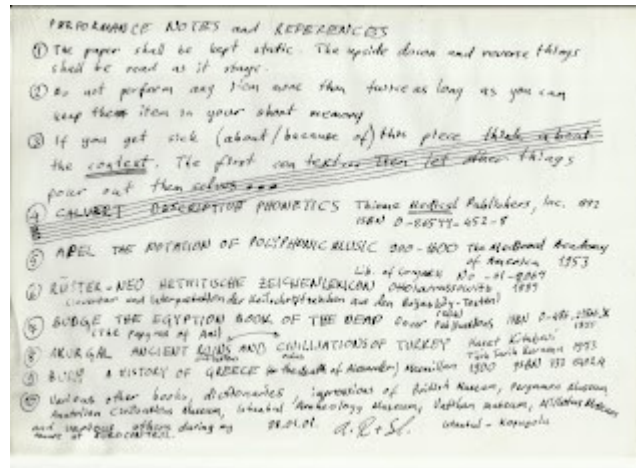 PERFORMANCE NOTES and REFERENCES
① The paper shall be kept static. The upside down and reverse things
shall be read as it stays.
② Do not perform any item more than twice as long as you can
keep the item in your short memory
③ If you get sick (about/because of) this piece think about
the context. The first then let other things
pour out themselves
④ CALVERT DESCRIPTIVE PHONETICS Thieme Medical Publishers, Inc.
ISBN 0-86577-452-8
⑤ APEL THE NOTATION OF POLYPHONIC MUSIC 900-1600 The Mediaeval Academy
of America 1953
Lib. of Congress No
⑥ RÜSTER-NEU HETHITISCHE ZEICHENLEXIKON 1989
(Inventar und Interpretation der Keilschriftzeichen aus den Boğazköy-Texten)
⑦ BUDGE THE EGYPTION BOOK OF THE DEAD Dover Publications ISBN
(The papyrus of Ani)
⑧ AKURGAL ANCIENT RUINS AND CIVILIATIONS OF TURKEY Haset Kitabevi
1993
⑨ BURY A HISTORY OF GREECE (to the death of Alexander) Macmillan 1900
⑩ Various other books, dictionaries impressions of British Museum, Pergamon Museum
Anatolian Civilizations Museum, Istanbul Archeology Museum, Vatican museum,
and various others during my 28.01.01.